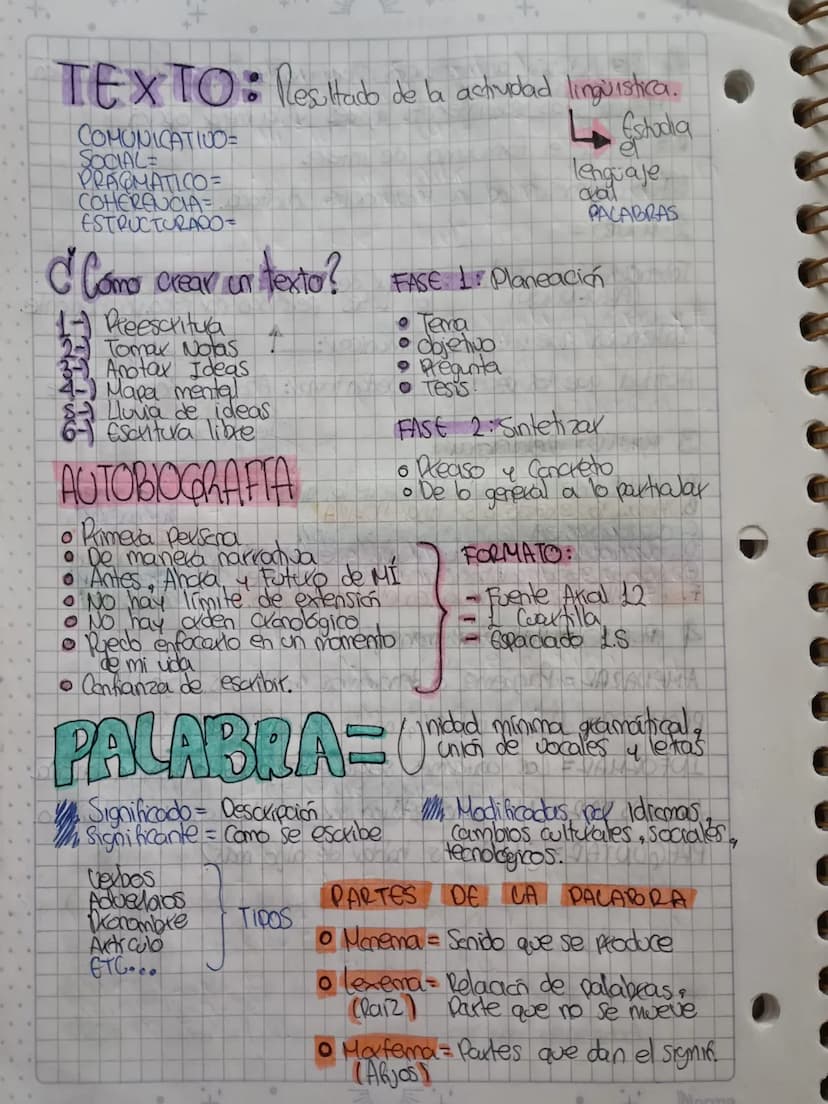 TEXTO: Resultado de la actividad lingüistica.
COMUNICATIVO=
SOCIAL=
PRAGMATICO=
COHERENCIA=
ESTRUCTURADO=
Estudia
el
lenguaje
oral
PALABRAS
¿Cómo crear un texto?
1-) Preescritura
2-) Tomar Notas
3-) Anotar Ideas
4-) Mapa mental
5-) Lluvia de ideas
6-) Escritura libre
FASE 1: Planeación
• Tema
• Objetivo
• Pregunta
• Tesis
FASE 2: Sintetizar
• Preciso y Concreto
• De lo general a lo particular
AUTOBIOGRAFIA
• Primera persona
• De manera narrativa
• Antes, Ahora y Futuro de MÍ
• NO hay límite de extensión
• NO hay orden cronológico
• Puedo enfocarlo en un momento
de mi vida
• Confianza de escribir.
FORMATO:
- Fuente Arial 12
- 1 Cuartilla
- Espaciado 1.5
PALABRA= Unidad mínima gramátical,
unión de vocales y letras
Significado = Descripción
Significante = Como se escribe
Modificados por idiomas,
cambios culturales, sociales,
tecnológicos.
Verbos
Adverbios
Pronombre
Artículo
ETC...
TIPOS
PARTES DE LA PALABORA
• Monema = Sonido que se produce
• Lexema = Relación de palabras,
(Raíz) Parte que no se mueve
• Morfema = Partes que dan el signif.
(Afijos)